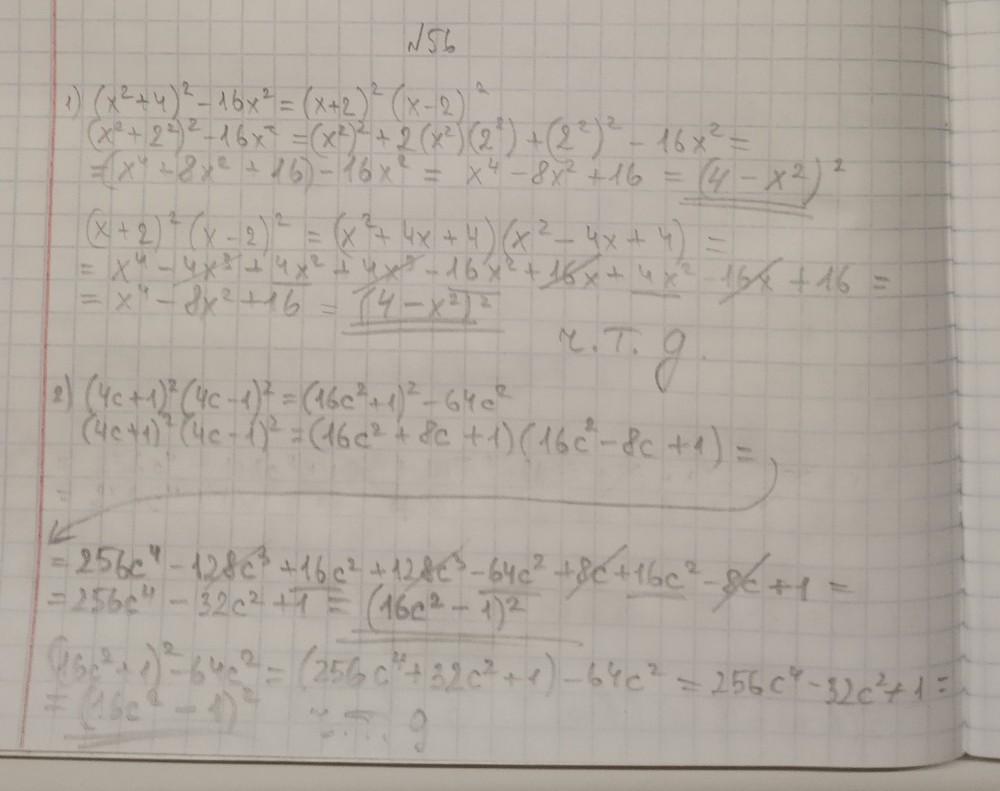 №56
1) (x²+4)² - 16x² = (x+2)² (x-2)²
(x²+2²)² - 16x² = (x²)² + 2(x²)(2²) + (2²)² - 16x² =
= (x⁴ + 8x² + 16) - 16x² = x⁴ - 8x² + 16 = (4 - x²)²
(x+2)² (x-2)² = (x² + 4x + 4)(x² - 4x + 4) =
= x⁴ - 4x³ + 4x² + 4x³ - 16x² + 16x + 4x² - 16x + 16 =
= x⁴ - 8x² + 16 = (4 - x²)²
ч.т.д.
2) (4c+1)² (4c-1)² = (16c²+1)² - 64c²
(4c+1)² (4c-1)² = (16c² + 8c + 1)(16c² - 8c + 1) =
= 256c⁴ - 128c³ + 16c² + 128c³ - 64c² + 8c + 16c² - 8c + 1 =
= 256c⁴ - 32c² + 1 = (16c² - 1)²
(16c²+1)² - 64c² = (256c⁴ + 32c² + 1) - 64c² = 256c⁴ - 32c² + 1 =
= (16c² - 1)² ч.т.д